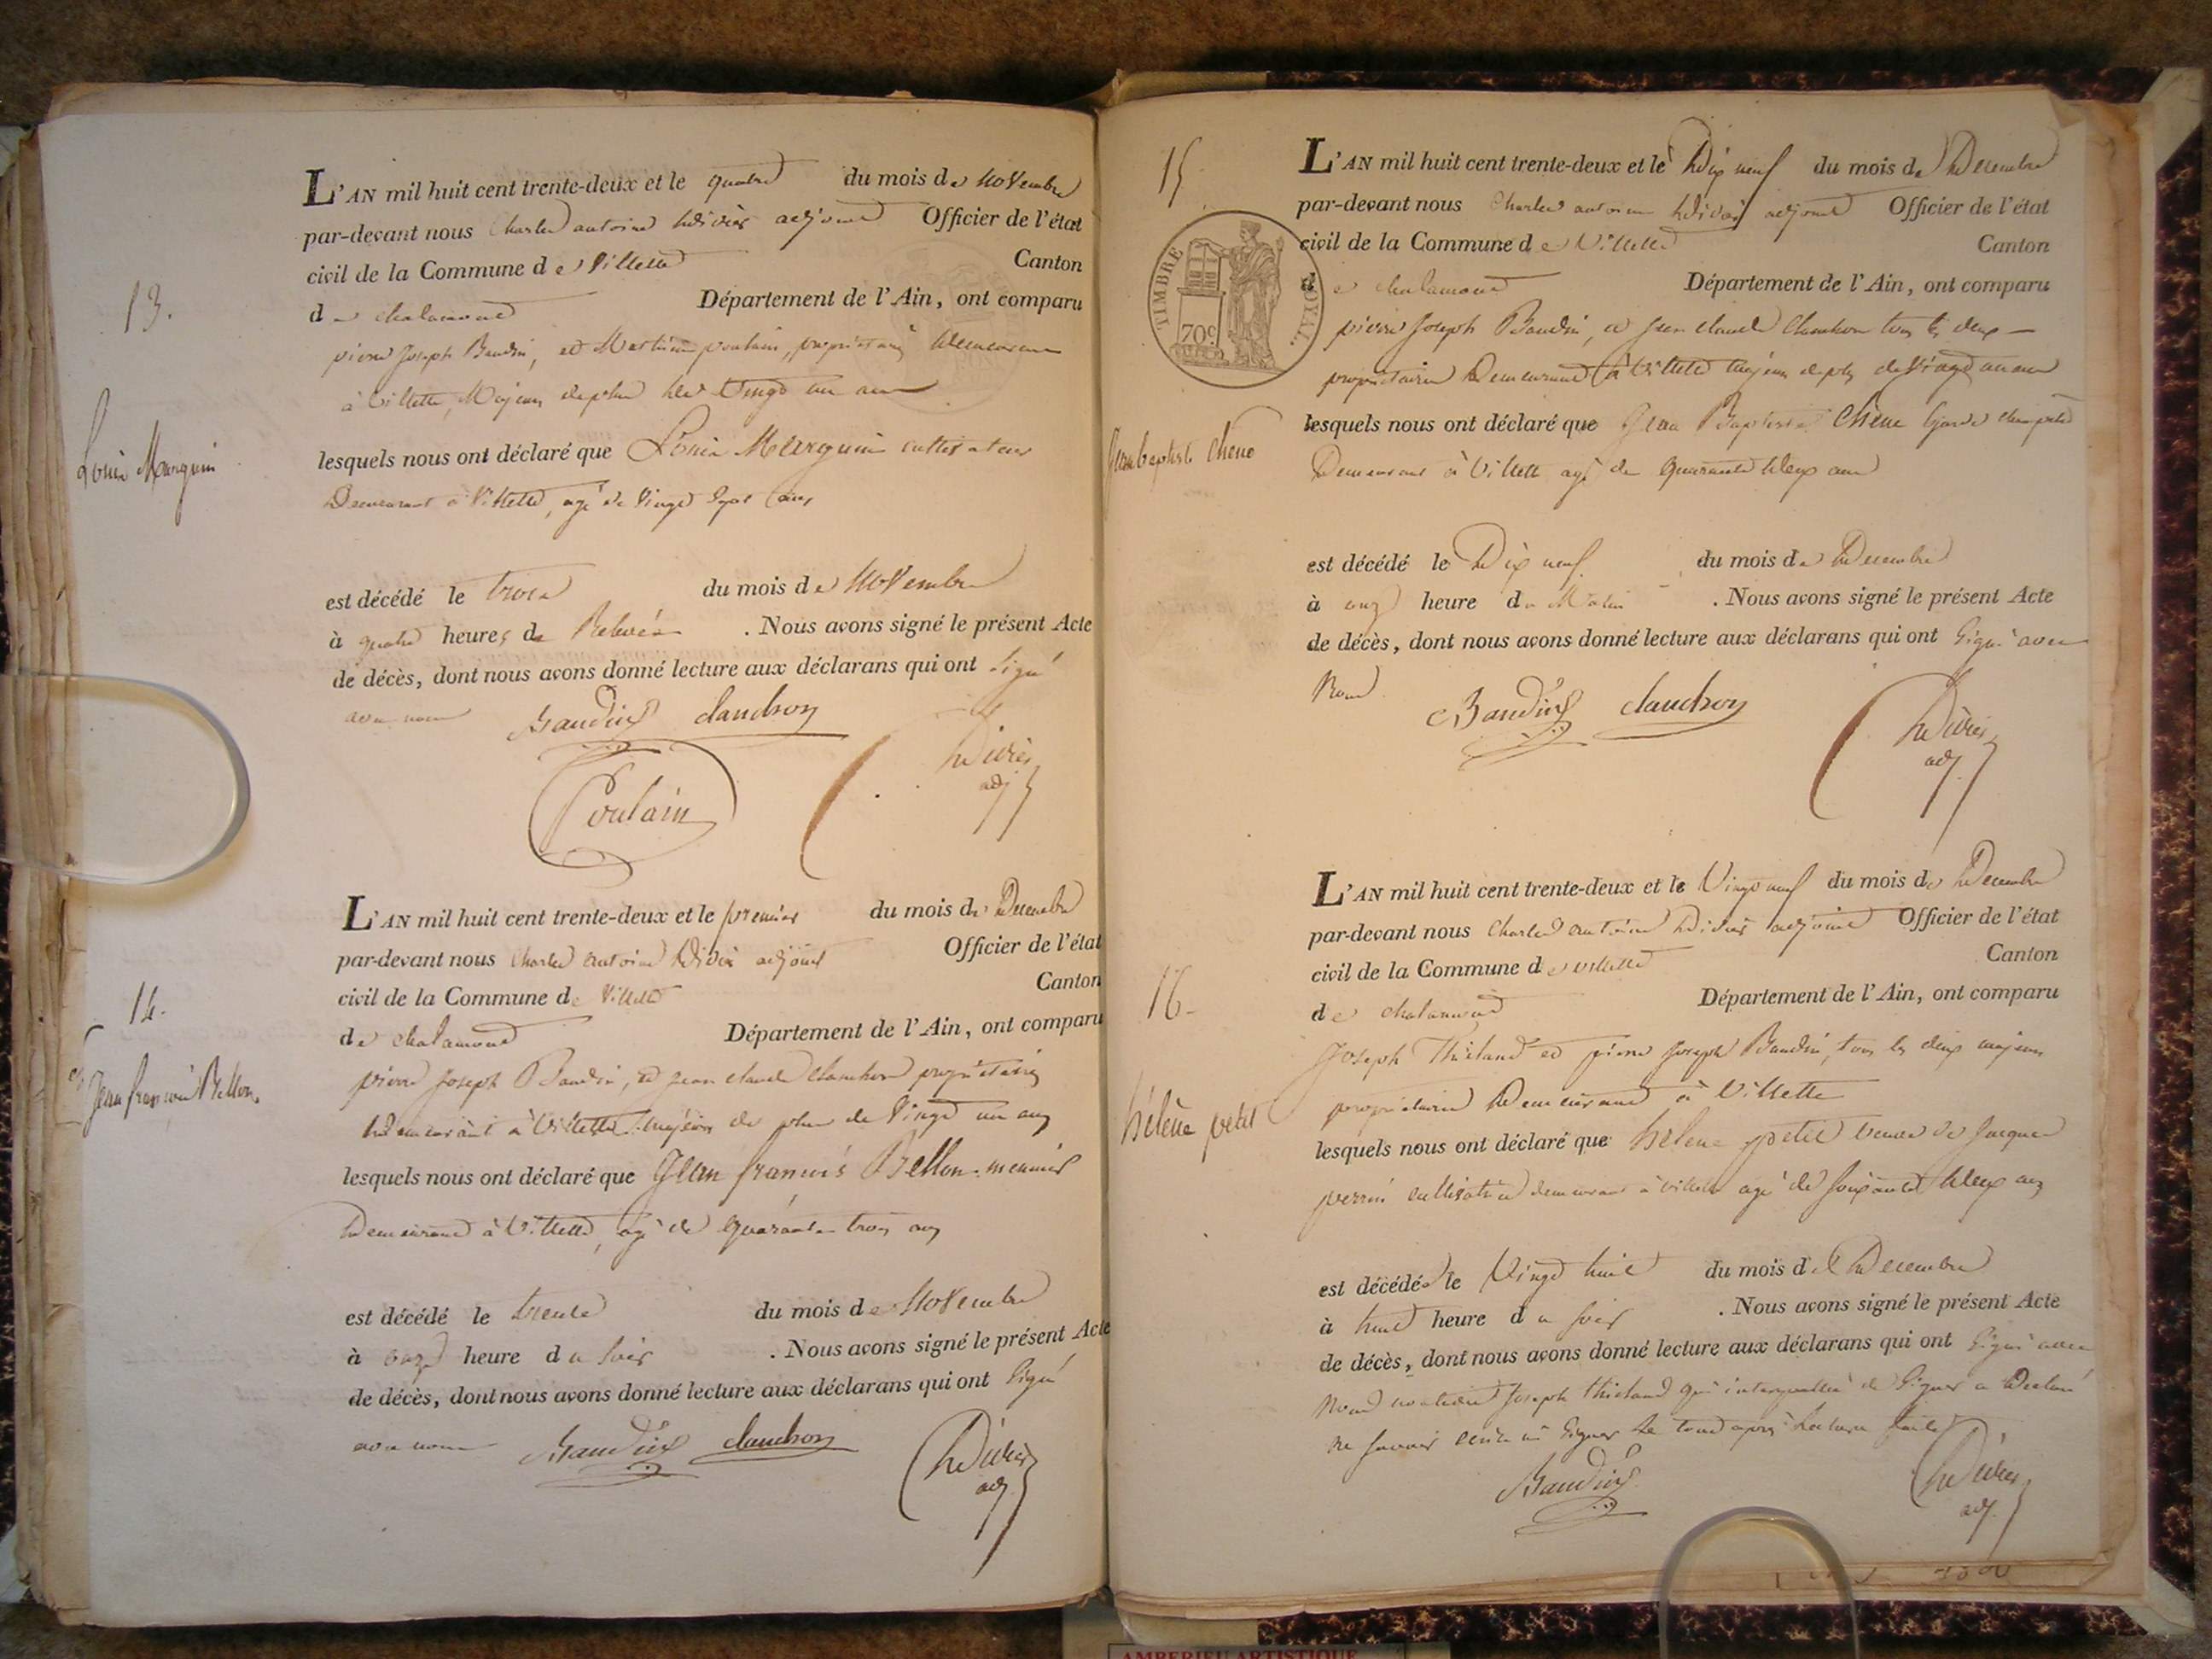 13.
Louis Marguin
L'AN mil huit cent trente-deux et le quatre du mois de Novembre
par-devant nous Charles antoine Didier adjoint Officier de l'état
civil de la Commune de Villette Canton
de chalamont Département de l'Ain, ont comparu
pierre Joseph Baudin, et Mathieu poulain, propriétaires Demeurant
à Villette, Majeurs de plus de Vingt un ans
lesquels nous ont déclaré que Louis Marguin cultivateur
Demeurant à Villette, agé de Vingt Sept ans
est décédé le trois du mois de Novembre
à quatre heures de Relevée . Nous avons signé le présent Acte
de décès, dont nous avons donné lecture aux déclarans qui ont Signé
avec nous Baudin claudron
Poulain Didier
adj
14.
Jean françois Bellon.
L'AN mil huit cent trente-deux et le premier du mois de Decembre
par-devant nous Charles antoine Didier adjoint Officier de l'état
civil de la Commune de Villette Canton
de chalamont Département de l'Ain, ont comparu
pierre Joseph Baudin, et jean claude claudron propriétaires
Demeurant à Villette majeurs de plus de Vingt un ans
lesquels nous ont déclaré que Jean françois Bellon meunier
Demeurant à Villette, agé de quarante trois ans
est décédé le trente du mois de Novembre
à onze heure du soir . Nous avons signé le présent Acte
de décès, dont nous avons donné lecture aux déclarans qui ont Signé
avec nous Baudin claudron Didier
adj
15
TIMBRE ROYAL
70c
Jean baptiste Chene
L'AN mil huit cent trente-deux et le Dix neuf du mois de Decembre
par-devant nous Charles antoine Didier adjoint Officier de l'état
civil de la Commune de Villette Canton
de chalamont Département de l'Ain, ont comparu
pierre Joseph Baudin, et Jean claude claudron tous les deux
propriétaires Demeurant à Villette Majeurs de plus de Vingt un ans
lesquels nous ont déclaré que Jean Baptiste Chêne Garde champetre
Demeurant à Villette agé de quarante Deux ans
est décédé le Dix neuf du mois de Decembre
à onze heure du Matin . Nous avons signé le présent Acte
de décès, dont nous avons donné lecture aux déclarans qui ont Signé avec
Nous Baudin claudron Didier
adj.
16
hélène petit
L'AN mil huit cent trente-deux et le Vingt neuf du mois de Decembre
par-devant nous Charles antoine Didier adjoint Officier de l'état
civil de la Commune de villette Canton
de chalamont Département de l'Ain, ont comparu
Joseph et pierre Joseph Baudin, tous les deux majeurs
propriétaires Demeurant à Villette
lesquels nous ont déclaré que helene petit veuve de Jacques
perrin cultivatrice demeurant à Villette agé de soixante Deux ans
est décédée le Vingt huit du mois de Decembre
à huit heure du soir . Nous avons signé le présent Acte
de décès, dont nous avons donné lecture aux déclarans qui ont Signé avec
Nous Joseph qui de Signer a Declaré
ne savoir ecrire ni Signer Le tout après Lecture faite
Baudin Didier
adj.
AMBERIEU ARTISTIQUE